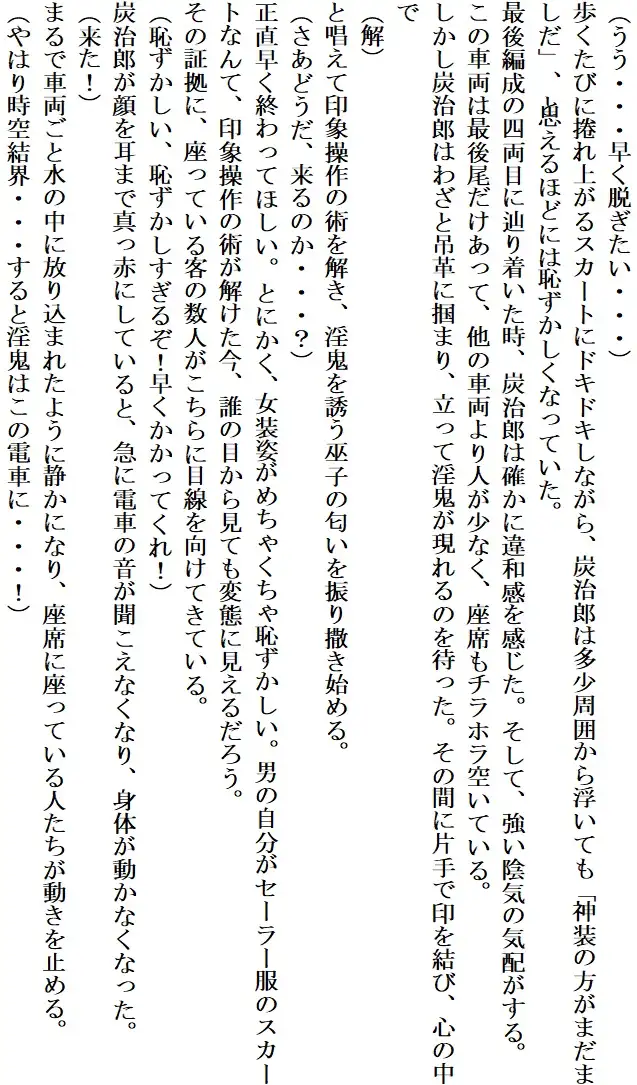 (うう・・・早く脱ぎたい・・・)
歩くたびに捲れ上がるスカートにドキドキしながら、炭治郎は多少周囲から浮いても「神装の方がまだま
しだ」、と思えるほどには恥ずかしくなっていた。
最後編成の四両目に辿り着いた時、炭治郎は確かに違和感を感じた。そして、強い陰気の気配がする。
この車両は最後尾だけあって、他の車両より人が少なく、座席もチラホラ空いている。
しかし炭治郎はわざと吊革に掴まり、立って淫鬼が現れるのを待った。その間に片手で印を結び、心の中
で
(解)
と唱えて印象操作の術を解き、淫鬼を誘う巫子の匂いを振り撒き始める。
(さあどうだ、来るのか・・・？)
正直早く終わってほしい。とにかく、女装姿がめちゃくちゃ恥ずかしい。男の自分がセーラー服のスカー
トなんて、印象操作の術が解けた今、誰の目から見ても変態に見えるだろう。
その証拠に、座っている客の数人がこちらに目線を向けてきている。
(恥ずかしい、恥ずかしすぎるぞ！早くかかってくれ！)
炭治郎が顔を耳まで真っ赤にしていると、急に電車の音が聞こえなくなり、身体が動かなくなった。
(来た！)
まるで車両ごと水の中に放り込まれたように静かになり、座席に座っている人たちが動きを止める。
(やはり時空結界・・・すると淫鬼はこの電車に・・・！)